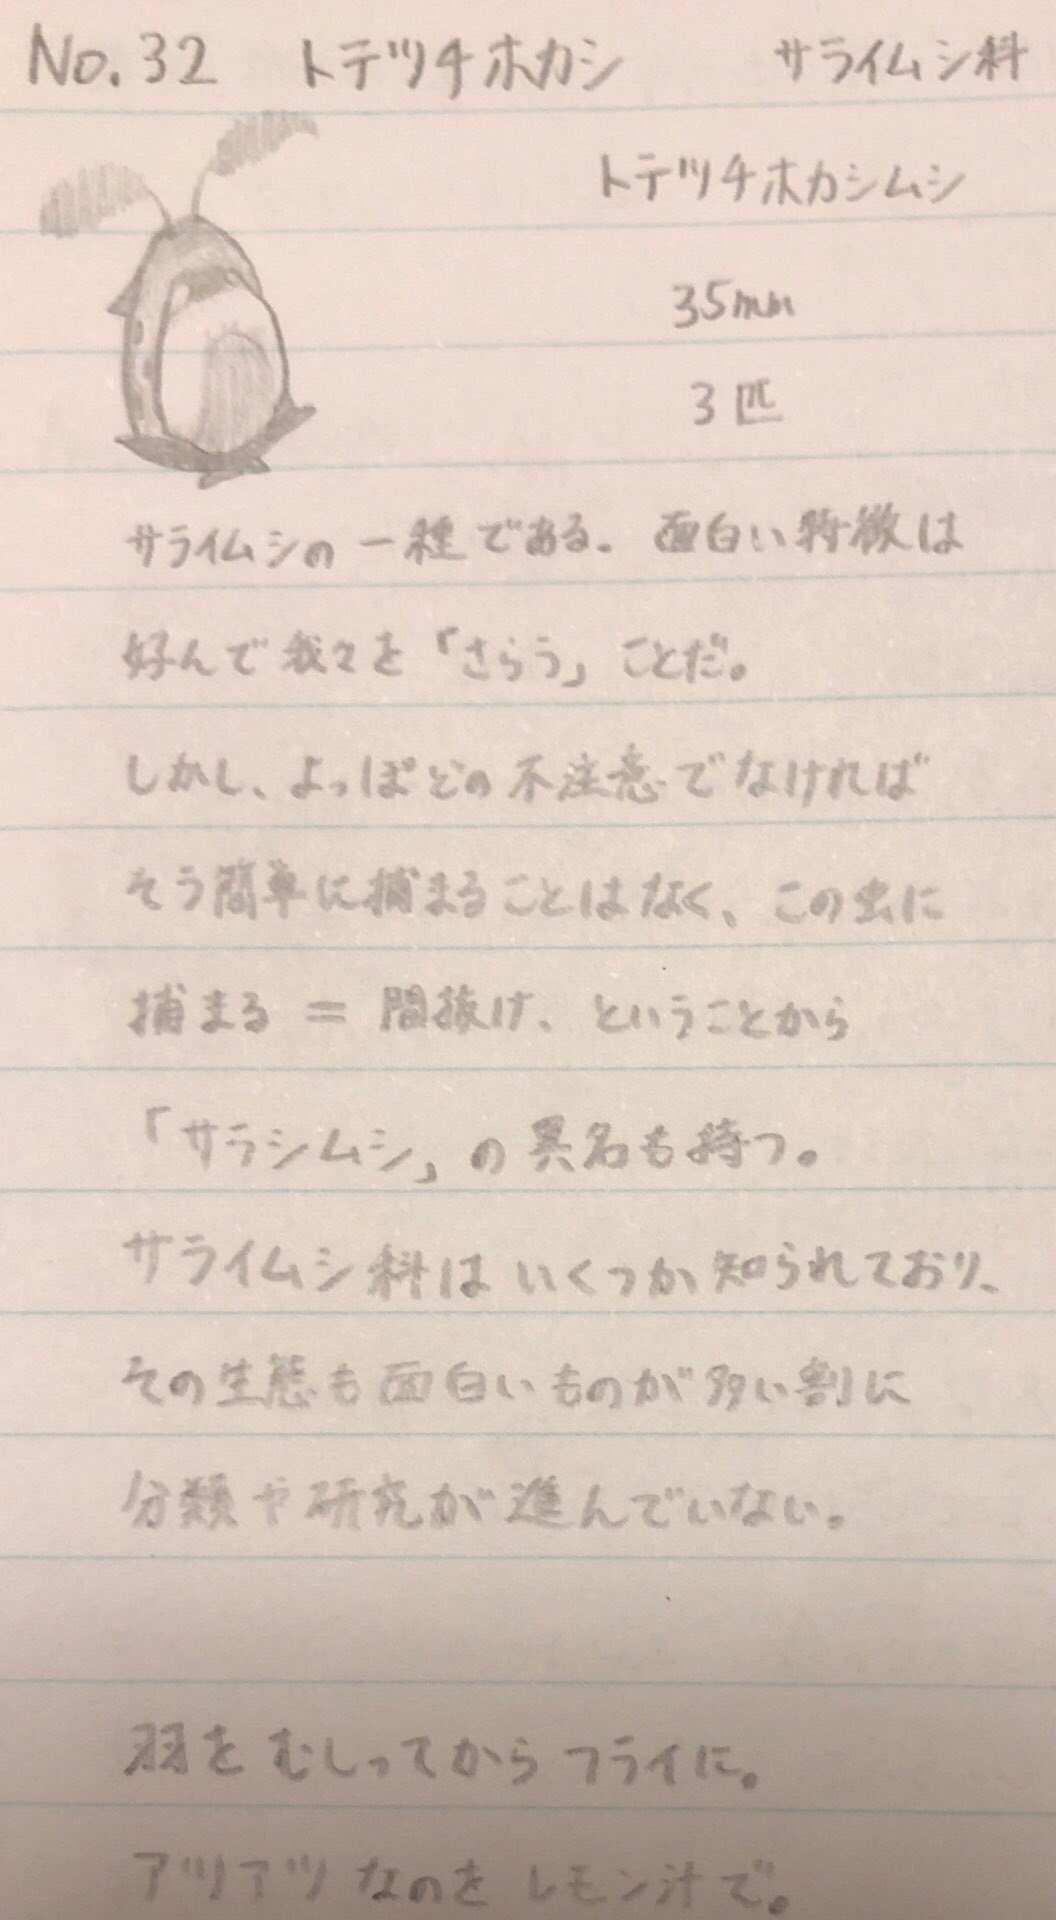 No.32 トテツチホカシ サライムシ科
トテツチホカシムシ
35mm
3匹
サライムシの一種である。面白い特徴は
好んで我々を「さらう」ことだ。
しかし、よっぽどの不注意でなければ
そう簡単に捕まることはなく、この虫に
捕まる＝間抜け、ということから
「サラシムシ」の異名も持つ。
サライムシ科はいくつか知られており、
その生態も面白いものが多い割に
分類や研究が進んでいない。
羽をむしってからフライに。
アツアツなのをレモン汁で。